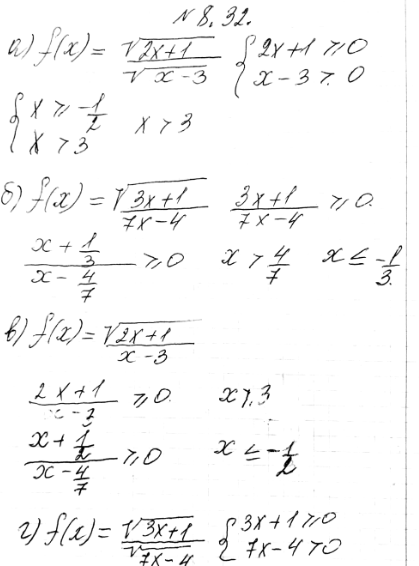 № 8.32.
а) f(x) = √(2x+1) / √(x-3) { 2x+1 ≥ 0
x-3 > 0
{ x ≥ -1/2
x > 3 x > 3
б) f(x) = √(3x+1) / 7x-4 3x+1 / 7x-4 ≥ 0.
x + 1/3 / x - 4/7 ≥ 0 x > 4/7 x ≤ -1/3.
в) f(x) = √(2x+1) / x-3
2x+1 / x-3 ≥ 0. x > 3
x + 1/2 / x - 4/7 ≥ 0 x ≤ -1/2
г) f(x) = √(3x+1) / √(7x-4) { 3x+1 ≥ 0
7x-4 > 0